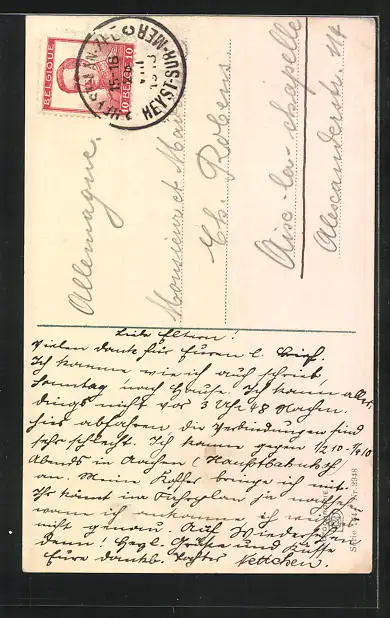 BELGIQUE
10 BELGIË 10
HEYST-SUR-MER
Allemagne.
Monsieur et Mad
Ch. Robens
Aix-la-chapelle
Alexanderstr. 114
Liebe Eltern!
Vielen dank für Euren l. Brief.
Ich komme wie ich auch schrieb,
Sonntag nach Hause. Ich kann aller-
dings nicht vor 3 Uhr 48 Nachm.
hier abfahren, die Verbindungen sind
sehr schlecht. Ich komme gegen 1/2 10 -
Abends in Aachen (Hauptbahnhof
an. Meine Koffer bringe ich mit.
Ihr könnt im Fahrplan ja nachsehen
wann ich ankomme ich weiss
nicht genau. Auf Wiedersehen
denn! Herzl. Grüsse und Küsse
Eure dankb. Tochter Nettchen.
Serie Nr. 2948